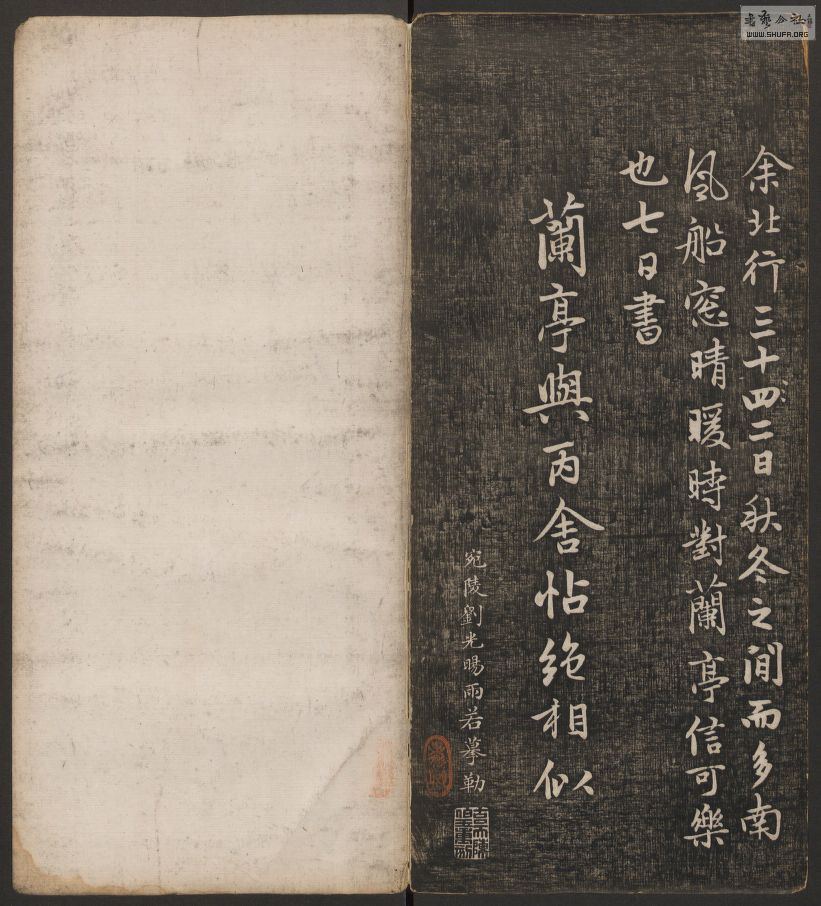 余北行三十四二日秋冬之間而多南
風船窓晴暖時對蘭亭信可樂
也七日書
蘭亭與丙舍帖絶相似
宛陵劉光暘雨若摹勒
WWW.SHUFA.ORG